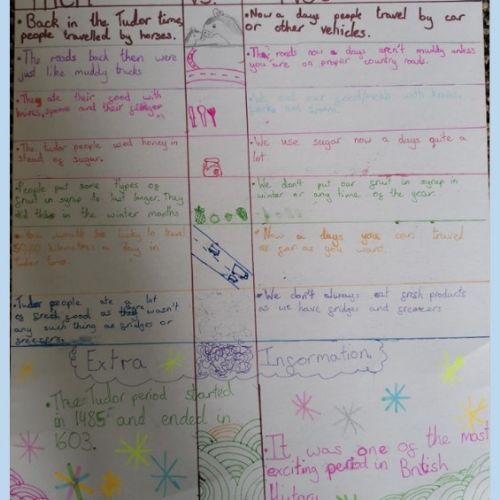 Then vs Now
• Back in the Tudor time,
people travelled by horses.
• Now a days people travel by car
or other vehicles.
• The roads back then were
just like muddy trucks
• The roads now a days aren't muddy unless
you are on proper country roads.
• They ate their good with
knives, spoons and their fingers.
• We eat our good/meals with knives,
forks and spoons.
• The tudor people used honey in
stead of sugar.
• We use sugar now a days quite a
lot.
• People put some types of
fruit in syrup to last longer. They
did this in the winter months
• We don't put our fruit in syrup in
winter or any time of the year.
• You would be lucky to travel
kilometres a day in
Tudor times.
• Now a days you can travel
as far as you want.
• Tudor people ate a lot
of fresh good as there wasn't
any such thing as fridges or
freezers.
• We don't always eat fresh products
as we have fridges and freezers
Extra Information
• The Tudor period started
in 1485 and ended in
1603.
• It was one of the most
exciting period in British
History.